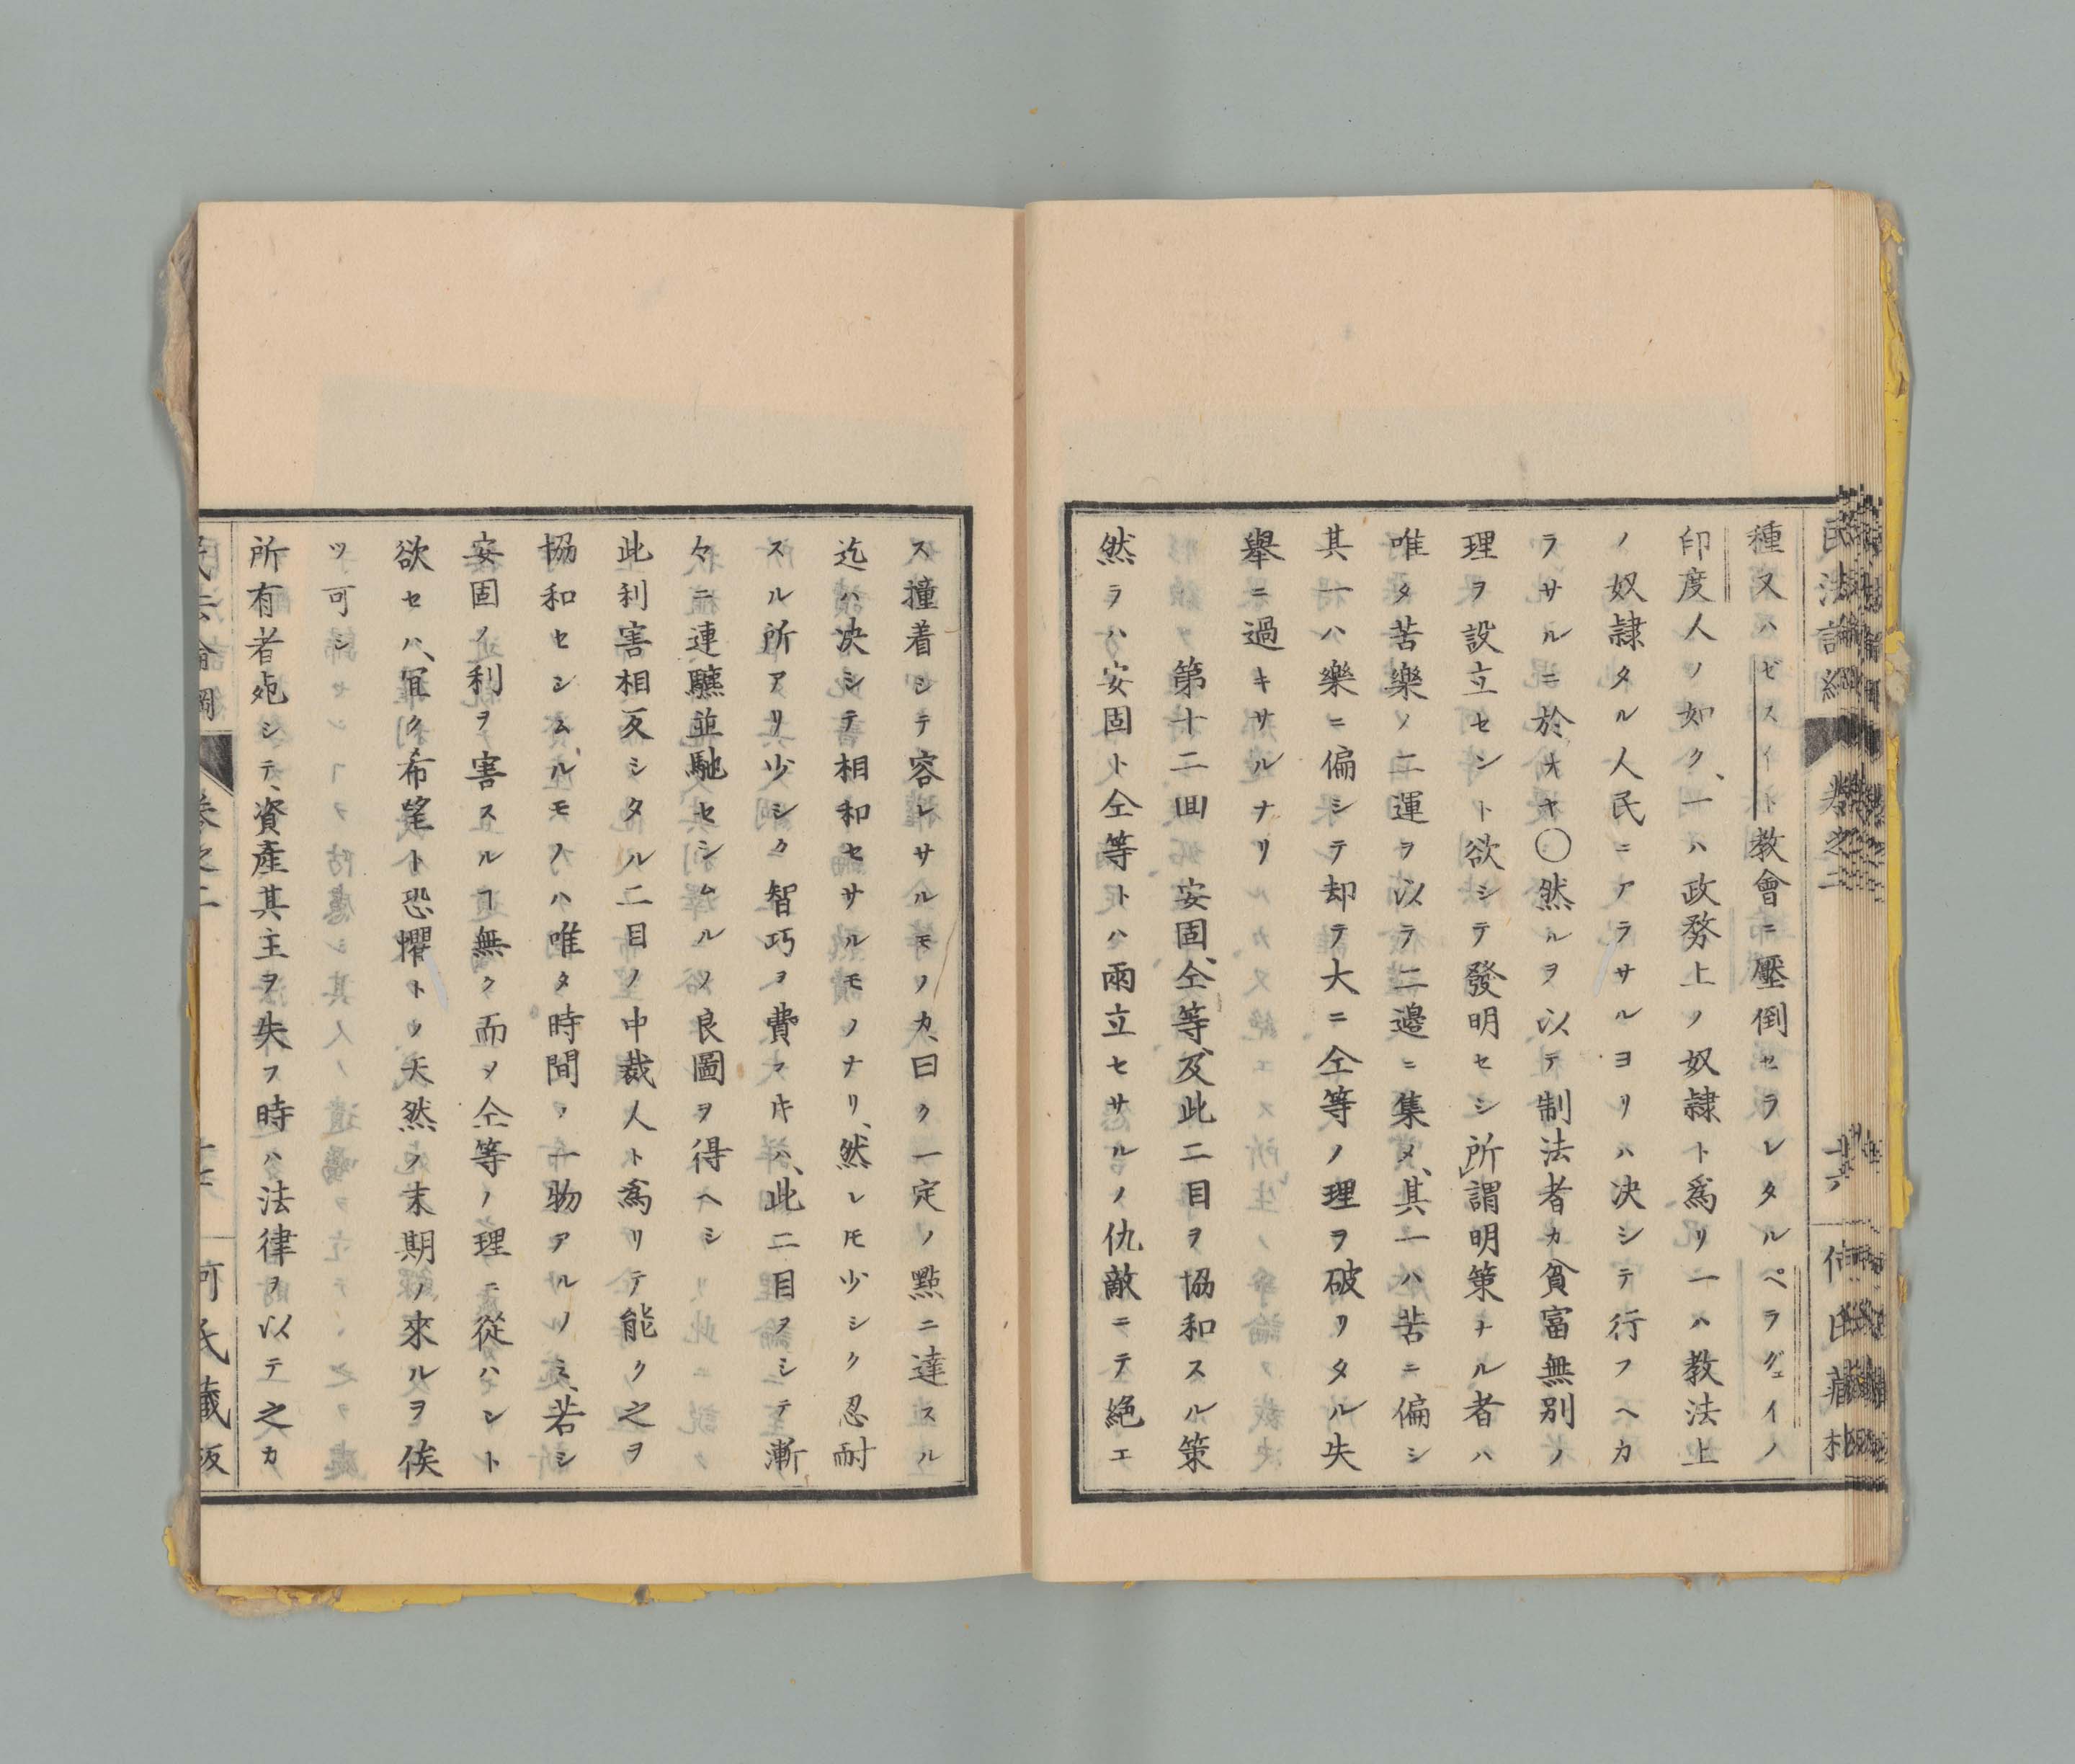 民法論綱 卷之二 十六 何氏藏板
種又ハゼスイト教會ニ壓倒セラレタルペラグェイノ
印度人ノ如ク、一ハ政務上ノ奴隷ト爲リ一ハ教法上
ノ奴隷タル人民ニアラサルヨリハ决シテ行フヘカ
ラサルニ於オヤ〇然ルヲ以テ制法者カ貧富無別ノ
理ヲ設立セント欲シテ發明セシ所謂明策ナル者ハ
唯タ苦樂ノ二運ヲ以テ二邊ニ集メ、其一ハ苦ニ偏シ
其一ハ樂ニ偏シテ却テ大ニ仝等ノ理ヲ破リタル失
舉ニ過キサルナリ
第十二囬 安固、仝等、及此二目ヲ協和スル策
然ラハ安固ト仝等トハ兩立セサルノ仇敵ニテ絶エ
ス撞着シテ容レサルモノカ、曰ク一定ノ點ニ達スル
迄ハ决シテ相和セサルモノナリ、然レ𪜈少シク忍耐
スル所アリ少シク智巧ヲ費サハ、此二目ヲシテ漸
々ニ連驫並馳セシムルノ良圖ヲ得ヘシ
此利害相反シタル二目ノ中裁人ト爲リテ能ク之ヲ
協和セシムルモノハ唯タ時間ノ一物アルノミ、若シ
安固ノ利ヲ害スルヿ無ク而〆仝等ノ理ニ從ハント
欲セハ、冝ク希望ト恐懼トノ天然ノ末期ノ來ルヲ俟
ツ可シ
所有者死シテ、資產其主ヲ失フ時ハ法律ヲ以テ之カ
民法論綱 卷之二 十七 何氏藏板